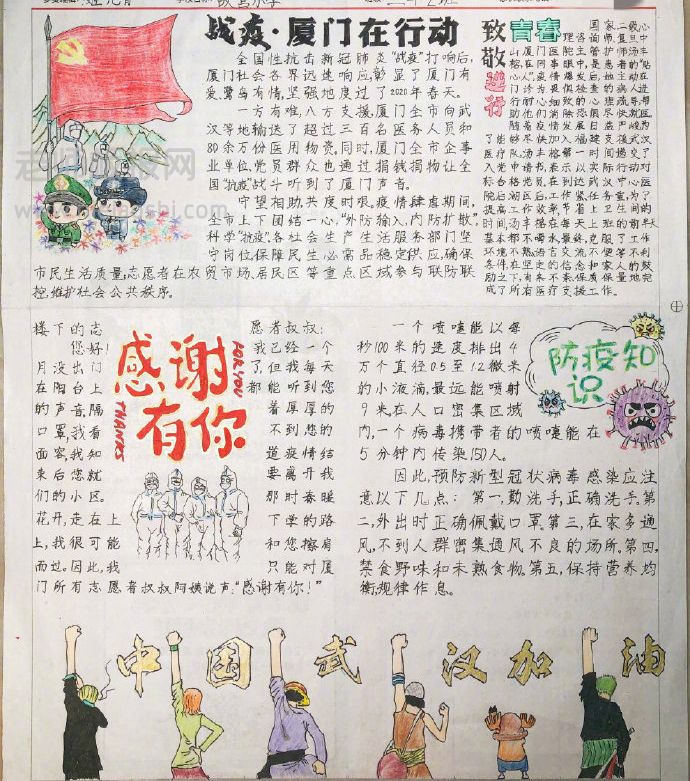 战疫·厦门在行动
全国性抗击新冠肺炎“战疫”打响后,
厦门社会各界迅速响应,彰显了厦门有
爱、鹭岛有情,坚强地度过了2020年春天。
一方有难,八方支援,厦门全市向武
汉等地输送了超过三百名医务人员和
80余万份医用物资,同时,厦门全市企事
业单位,党员群众也通过捐钱捐物让全
国“抗疫”战斗听到了厦门声音。
守望相助共度时艰。疫情肆虐期间,
全市上下团结一心,“外防输入,内防扩散,”
科学“抗疫”。各社会生产生活服务部门坚
守岗位,保障民生必需品稳定供应,确保
市民生活质量,志愿者在农贸市场、居民区等重点区域参与联防联
控,维护社会公共秩序。
致敬青春逆行
国家二级心
理咨询师、复旦中
山厦门医院主管护师汤丰
榕,在同事眼中,是患者的“贴
心人”。疫情爆发后,她主动在
门诊为畏惧检查的病人进
行耐心细致的心理疏导,帮
助他们消除恐惧,尽快就医。
随着疫情发展日益严峻,为
了能够尽快加入福建支援武汉
医疗队,汤丰榕第一时间递交了
入党申请书,表示以实际行动对
标合格党员。在到达武汉中心医
院后湖区后,工作紧、任务重,为了
提高工作效率,节省上卫生间的
时间,汤丰榕在每天上班的前半天
基本都不喝水,最终,克服了工作
环境不熟、语言交流不便等不利
条件,在坚定的信念和家人的鼓
励之下,有来不紊、保质保量地完
成了所有医疗支援工作。
楼下的志愿者叔叔:
您好!我已经一个
月没出门了,但我每天
在阳台上都能听到您
的声音,隔着厚厚的
口罩,我看不到您的
面容,我知道疫情结
束后您就要离开我
们的小区。那时春暖
花开,走在上下学的路
上,我很可能和您擦肩
而过。因此,我只能对厦
门所有志愿者叔叔阿姨说声:“感谢有你!”
感谢有你
FOR YOU
THANKS
防疫知识
一个喷嚏能以每
秒100米的速度排出4
万个直径0.5至12微米
的小液滴,最远能喷射
9米在人口密集区域
内,一个病毒携带者的喷嚏能在
5分钟内传染150人。
因此,预防新型冠状病毒感染应注
意以下几点:第一,勤洗手,正确洗手。第
二,外出时正确佩戴口罩。第三,在家多通
风,不到人群密集通风不良的场所。第四,
禁食野味和未熟食物。第五,保持营养均
衡,规律作息。
中国武汉加油